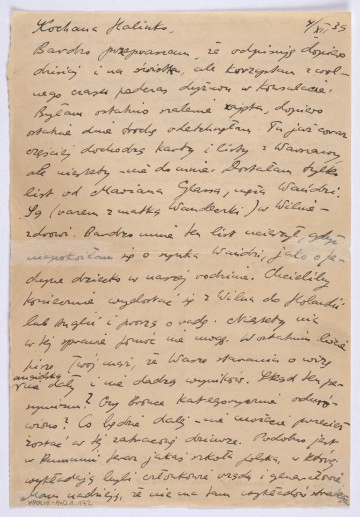 7/XII 39
Kochana Halinko,
Bardzo przepraszam, że odpisuję dopiero
dzisiaj i na świstku, ale korzystam z wol-
nego czasu podczas dyżuru w Konsulacie.
Byłam ostatnio szalenie zajęta, dopiero
ostatnie dwa trochę odetchnęłam. Tu już coraz
częściej dochodzą karty i listy z Warszawy,
ale niestety nie do mnie. Dostałam tylko
list od Mariana Glassa, męża Wandzi.
Są (razem z matką Wandeczki) w Wilnie -
zdrowi. Bardzo mnie ten list ucieszył, gdyż
niepokoiłam się o synka Wandzi, jako o je-
dyne dziecko w naszej rodzinie. Chcieliby
koniecznie wydostać się z Wilna do Holandii
lub Anglii i proszą o radę. Niestety nic
w tej sprawie pomóc nie mogę. W ostatnim liście
pisze Twój mąż, że Wasze starania o wizy
angielskie
nie dały i nie dadzą wyników. Skąd ten pe-
symizm? Czy Bronce kategorycznie odmó-
wiono? Co będzie dalej - nie możecie przecież
zostać w tej zatraconej dziurze. Podobno jest
w Rumunii teraz jakaś szkoła polska, w której
wykładają byli członkowie rządu i generałowie.
Mam nadzieję, że nie ma tam wykładów